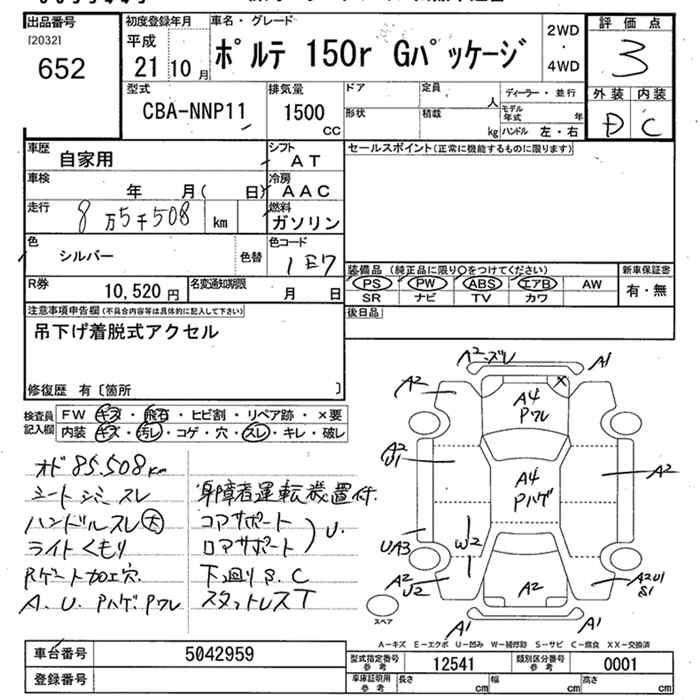 出品番号
[2032]
652
初度登録年月
平成
21 10 月
車名・グレード
ポルテ 150r Gパッケージ
2WD
・
4WD
評価点
3
外装 内装
D C
型式
CBA-NNP11
排気量
1500
CC
ドア
定員
人
ディーラー・並行
形状
積載
kg
モデル年式
年
ハンドル 左・右
車歴
自家用
シフト
AT
セールスポイント(正常に機能するものに限ります)
車検
年 月( 日)
冷房
AAC
走行
8万5千508 km
燃料
ガソリン
色
シルバー
色替
色コード
1E7
R券
10,520 円
名変通知期限
月 日
装備品 (純正品に限り○をつけてください)
新車保証書
PS PW ABS エアB AW
SR ナビ TV カワ
有・無
後日品
注意事項申告欄(不具合内容等は具体的に記入して下さい)
吊下げ着脱式アクセル
修復歴 有〔箇所 〕
検査員
記入欄
FW キズ・飛石・ヒビ割・リペア跡・×要
内装 キズ・汚レ・コゲ・穴・スレ・キレ・破レ
オド 85,508km
シートシミ スレ
ハンドルスレ大
ライトくもり
Rゲート加工穴
A.U.Pハゲ.Pワレ
身障者運転装置付
コアサポート
ロアサポート
U.
下廻りS.C
スタットレスT
A2・ズレ
A1
A2
×
A4
Pワレ
A2
U1
A4
Pハゲ
A2
UA3
W2
A2
U2
A2
A2U1
S1
A1
A1
スペア
A−キズ E−エクボ U−凹み W−補修跡 S−サビ C−腐食 XX−交換済
車台番号
5042959
型式指定番号
参考
12541
類別区分番号
参考
0001
登録番号
車庫証明用
参考
長さ
cm
幅
cm
高さ
cm